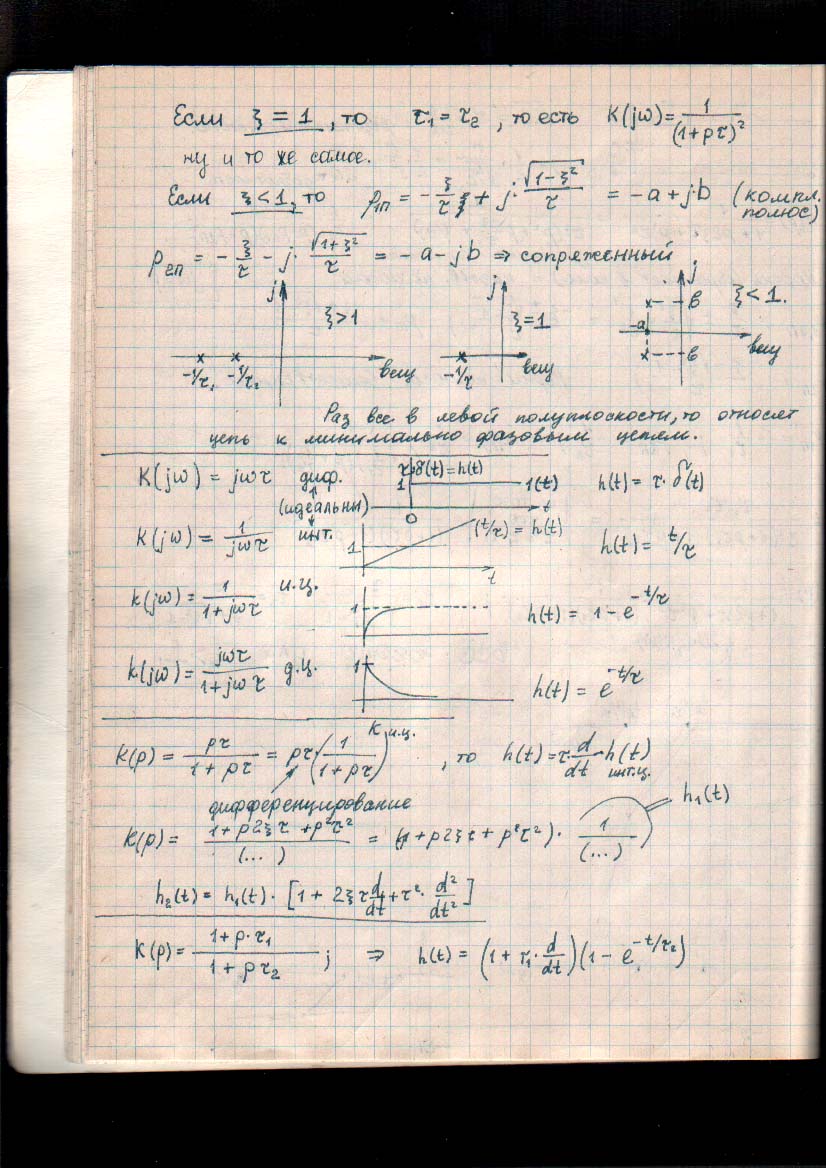 Если ξ = 1, то τ₁ = τ₂, то есть K(jω) = 1/(1+pτ)²
ну и то же самое.
Если ξ < 1, то p₁п = -ξ/τ + j·√(1-ξ²)/τ = -a + j·b (компл. полюс)
p₂п = -ξ/τ - j·√(1+ξ²)/τ = -a - jb ⇒ сопряженный
j ξ>1 -1/τ₁ -1/τ₂ вещ
j ξ=1 -1/τ вещ
j ξ<1. в -a в вещ
Раз все в левой полуплоскости, то относят
цепь к минимально фазовым цепям.
K(jω) = jωτ диф. τδ(t)=h(t) 1 1(t) 0 t h(t) = τ·δ(t)
(идеальны)
K(jω) = 1/(jωτ) инт. 1 (t/τ) = h(t) t h(t) = t/τ
K(jω) = 1/(1+jωτ) и.ц. 1 h(t) = 1 - e^(-t/τ)
K(jω) = jωτ/(1+jωτ) д.ц. 1 h(t) = e^(-t/τ)
K(p) = pτ/(1+pτ) = pτ·(1/(1+pτ)) K и.ц. , то h(t) = τ d/dt h(t) инт.ц.
дифференцирование
K(p) = (1+p2ξτ+p²τ²)/(...) = (1+p2ξτ+p²τ²)· 1/(...) h₁(t)
h₂(t) = h₁(t)·[1 + 2ξτ d/dt + τ²· d²/dt²]
K(p) = (1+p·τ₁)/(1+pτ₂) ; ⇒ h(t) = (1 + τ₁· d/dt)(1 - e^(-t/τ₂))